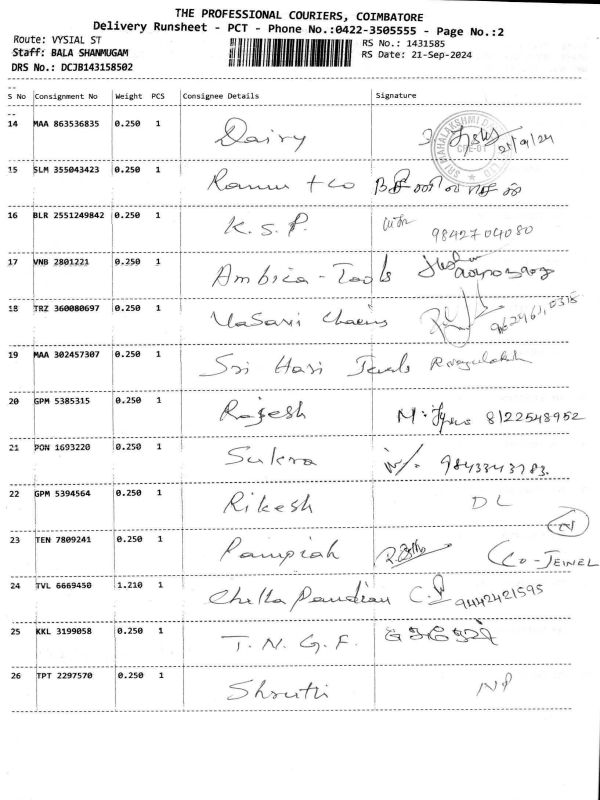 THE PROFESSIONAL COURIERS, COIMBATORE
Delivery Runsheet - PCT - Phone No.:0422-3505555 - Page No.:2
Route: VYSIAL ST
RS No.: 1431585
Staff: BALA SHANMUGAM
RS Date: 21-Sep-2024
DRS No.: DCJB143158502
S No Consignment No Weight PCS Consignee Details Signature
14 MAA 863536835 0.250 1 Dairy 21/9/24
SRI MAHALAKSHMI
15 SLM 355043423 0.250 1 Ramu + co
16 BLR 2551249842 0.250 1 K.S.P. 9842704080
17 VNB 2801221 0.250 1 Ambica - Tools
18 TRZ 360080697 0.250 1 Vasavi Chains
19 MAA 302457307 0.250 1 Sri Hari Jewels
20 GPM 5385315 0.250 1 Rajesh 8122548952
21 PON 1693220 0.250 1 Sukra 9843343783.
22 GPM 5394564 0.250 1 Rikesh DL
N
23 TEN 7809241 0.250 1 Pampiah
24 TVL 6669450 1.210 1 Chella Pandian C.P 9442421595
25 KKL 3199058 0.250 1 T.N.G.F.
26 TPT 2297570 0.250 1 Shruthi NP